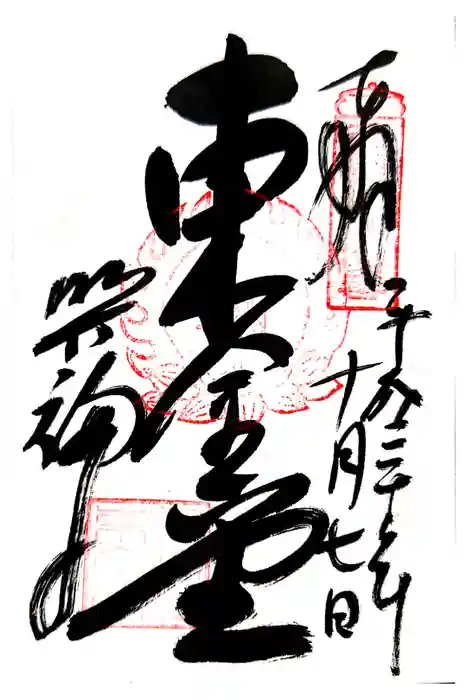 奉拝
平成二十六年
十月七日
東金堂
興福寺